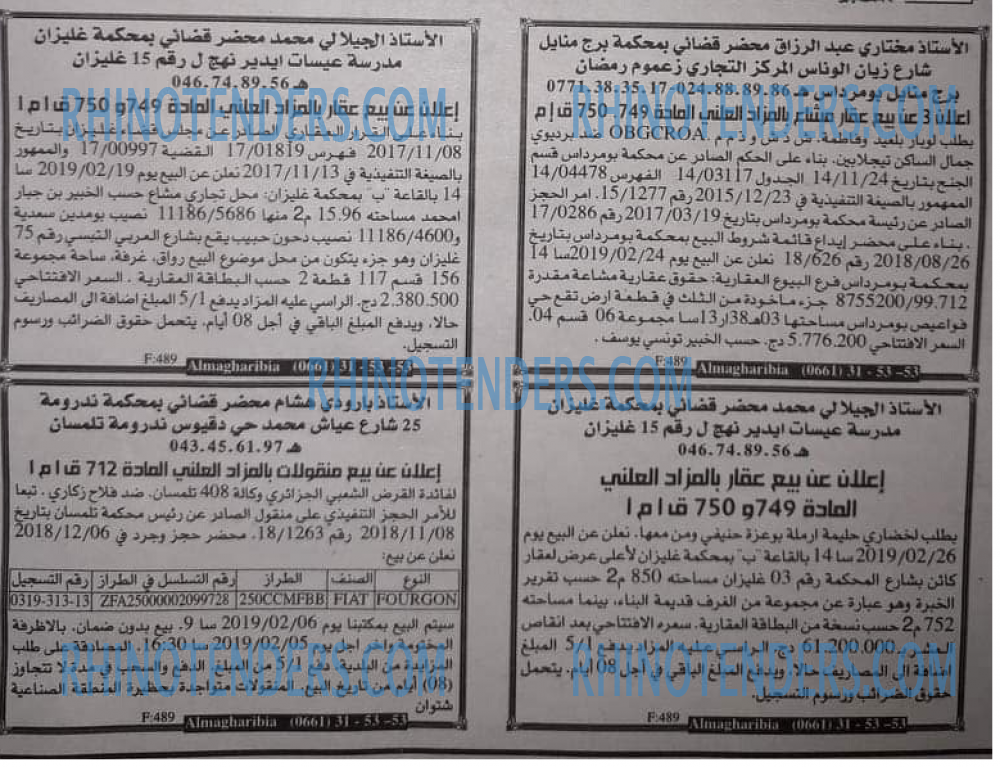 الأستاذ مختاري عبد الرزاق محضر قضائي بمحكمة برج منايل
شارع زيان الوناس المركز التجاري زعموم رمضان
برج منايل بومرداس هـ 024.88.89.86-0771.38.35.17
إعلان 3 عن بيع عقار مشاع بالمزاد العلني المادة 749-750 ق إ م
بطلب لوبار بلعيد وفاطمة. ش ذ ش و ذ م م OBGCROA. ضد برديوي
جمال الساكن تيجلابين. بناء على الحكم الصادر عن محكمة بومرداس قسم
الجنح بتاريخ 14/11/24 الجدول 14/03117 الفهرس 14/04478
الممهمور بالصيغة التنفيذية في 2015/12/23 رقم 15/1277. امر الحجز
الصادر عن رئيسة محكمة بومرداس بتاريخ 2017/03/19 رقم 17/0286
. بناء على محضر إيداع قائمة شروط البيع بمحكمة بومرداس بتاريخ
2018/08/26 رقم 18/626 نعلن عن البيع يوم 2019/02/24 سا 14
بمحكمة بومرداس فرع البيوع العقارية: حقوق عقارية مشاعة مقدرة
8755200/99.712 جزء ماخوذة من الثلث في قطعة ارض تقع حي
فواعيص بومرداس مساحتها 03هـ38ار13سا مجموعة 06 قسم 04.
السعر الافتتاحي 5.776.200 دج. حسب الخبير تونسي يوسف .
F:489 Almagharibia (0661) 31 - 53 -53
الأستاذ الجيلالي محمد محضر قضائي بمحكمة غليزان
مدرسة عيسات ايدير نهج ل رقم 15 غليزان
هـ 046.74.89.56
إعلان عن بيع عقار بالمزاد العلني المادة 749 و 750 ق إ م إ
بناء على القرار العقاري الصادر عن مجلس قضاء غليزان بتاريخ
2017/11/08 فهرس 17/01819 القضية 17/00997 والممهور
بالصيغة التنفيذية في 2017/11/13 نعلن عن البيع يوم 2019/02/19 سا
14 بالقاعة "ب" بمحكمة غليزان: محل تجاري مشاع حسب الخبير بن جبار
امحمد مساحته 15.96 م2 منها 11186/5686 نصيب بومدين سعدية
و11186/4600 نصيب دحون حبيب يقع بشارع العربي التبسي رقم 75
غليزان وهو جزء يتكون من محل موضوع البيع رواق، غرفة، ساحة مجموعة
156 قسم 117 قطعة 2 حسب البطاقة العقارية . السعر الافتتاحي
2.380.500 دج. الراسي عليه المزاد يدفع 5/1 المبلغ اضافة الى المصاريف
حالا، ويدفع المبلغ الباقي في أجل 08 أيام. يتحمل حقوق الضرائب ورسوم
التسجيل.
F:489 Almagharibia (0661) 31 - 53 -53
الأستاذ الجيلالي محمد محضر قضائي بمحكمة غليزان
مدرسة عيسات ايدير نهج ل رقم 15 غليزان
هـ 046.74.89.56
إعلان عن بيع عقار بالمزاد العلني
المادة 749 و 750 ق إ م إ
بطلب لخضاري حليمة ارملة بوعزة حنيفي ومن معها. نعلن عن البيع يوم
2019/02/26 سا 14 بالقاعة "ب" بمحكمة غليزان لأعلى عرض لعقار
كائن بشارع المحكمة رقم 03 غليزان مساحته 850 م2 حسب تقرير
الخبرة وهو عبارة عن مجموعة من الغرف قديمة البناء، بينما مساحته
752 م2 حسب نسخة من البطاقة العقارية. سعره الافتتاحي بعد انقاص
العشر 61.200.000 دج. الراسي عليه المزاد يدفع 5/1 المبلغ
اضافة الى المصاريف حالا، ويدفع المبلغ الباقي في أجل 08 أيام. يتحمل
حقوق الضرائب ورسوم التسجيل.
F:489 Almagharibia (0661) 31 - 53 -53
الأستاذ بارودي هشام محضر قضائي بمحكمة ندرومة
25 شارع عياش محمد حي دقيوس ندرومة تلمسان
هـ 043.45.61.97
إعلان عن بيع منقولات بالمزاد العلني المادة 712 ق إ م إ
لفائدة القرض الشعبي الجزائري وكالة 408 تلمسان. ضد فلاح زكاري . تبعا
للأمر الحجز التنفيذي على منقول الصادر عن رئيس محكمة تلمسان بتاريخ
2018/11/08 رقم 18/1263. محضر حجز وجرد في 2018/12/06
نعلن عن بيع:
النوع الصنف الطراز رقم التسلسل في الطراز رقم التسجيل
FOURGON FIAT 250CCMFBB ZFA25000002099728 0319-313-13
سيتم البيع بمكتبنا يوم 2019/02/06 سا 9. بيع بدون ضمان. بالاظرفة
المختومة واخر اجل يوم 2019/02/05 سا 16:30 المصادقة على طلب
المزايدة من البلدية. دفع 5/1 من المبلغ الدفع والسحب في مدة لا تتجاوز
(08) أيام من تاريخ البيع. المنقولات متواجدة بحظيرة المنطقة الصناعية
شتوان
F:489 Almagharibia (0661) 31 - 53 -53
RHINOTENDERS.COM
RHINOTENDERS.COM
RHINOTENDERS.COM
RHINOTENDERS.COM
RHINOTENDERS.COM